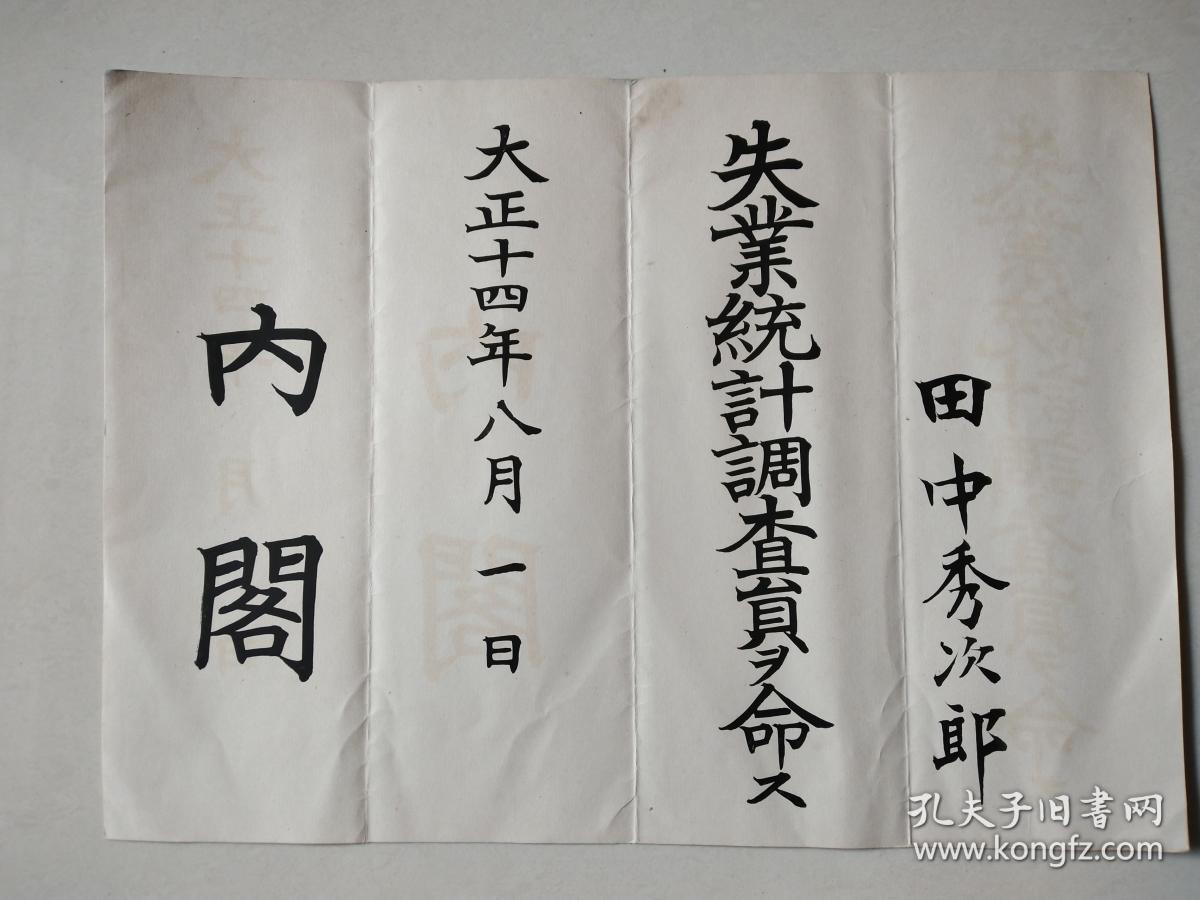 田中秀次郎
失業統計調査員ヲ命ス
大正十四年八月一日
内閣
孔夫子旧书网
www.kongfz.com